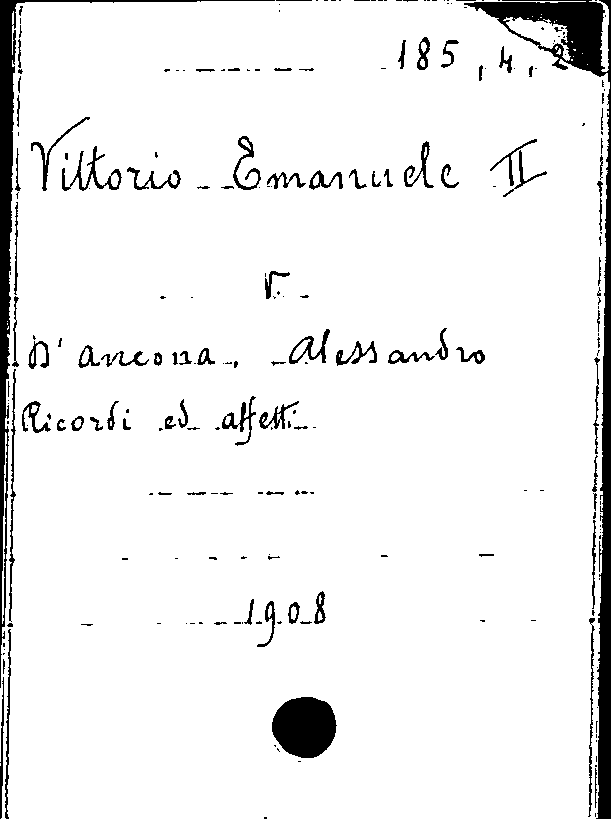 185.4.2
Vittorio Emanuele II
V.
D'ancona, Alessandro
Ricordi ed affetti
1908